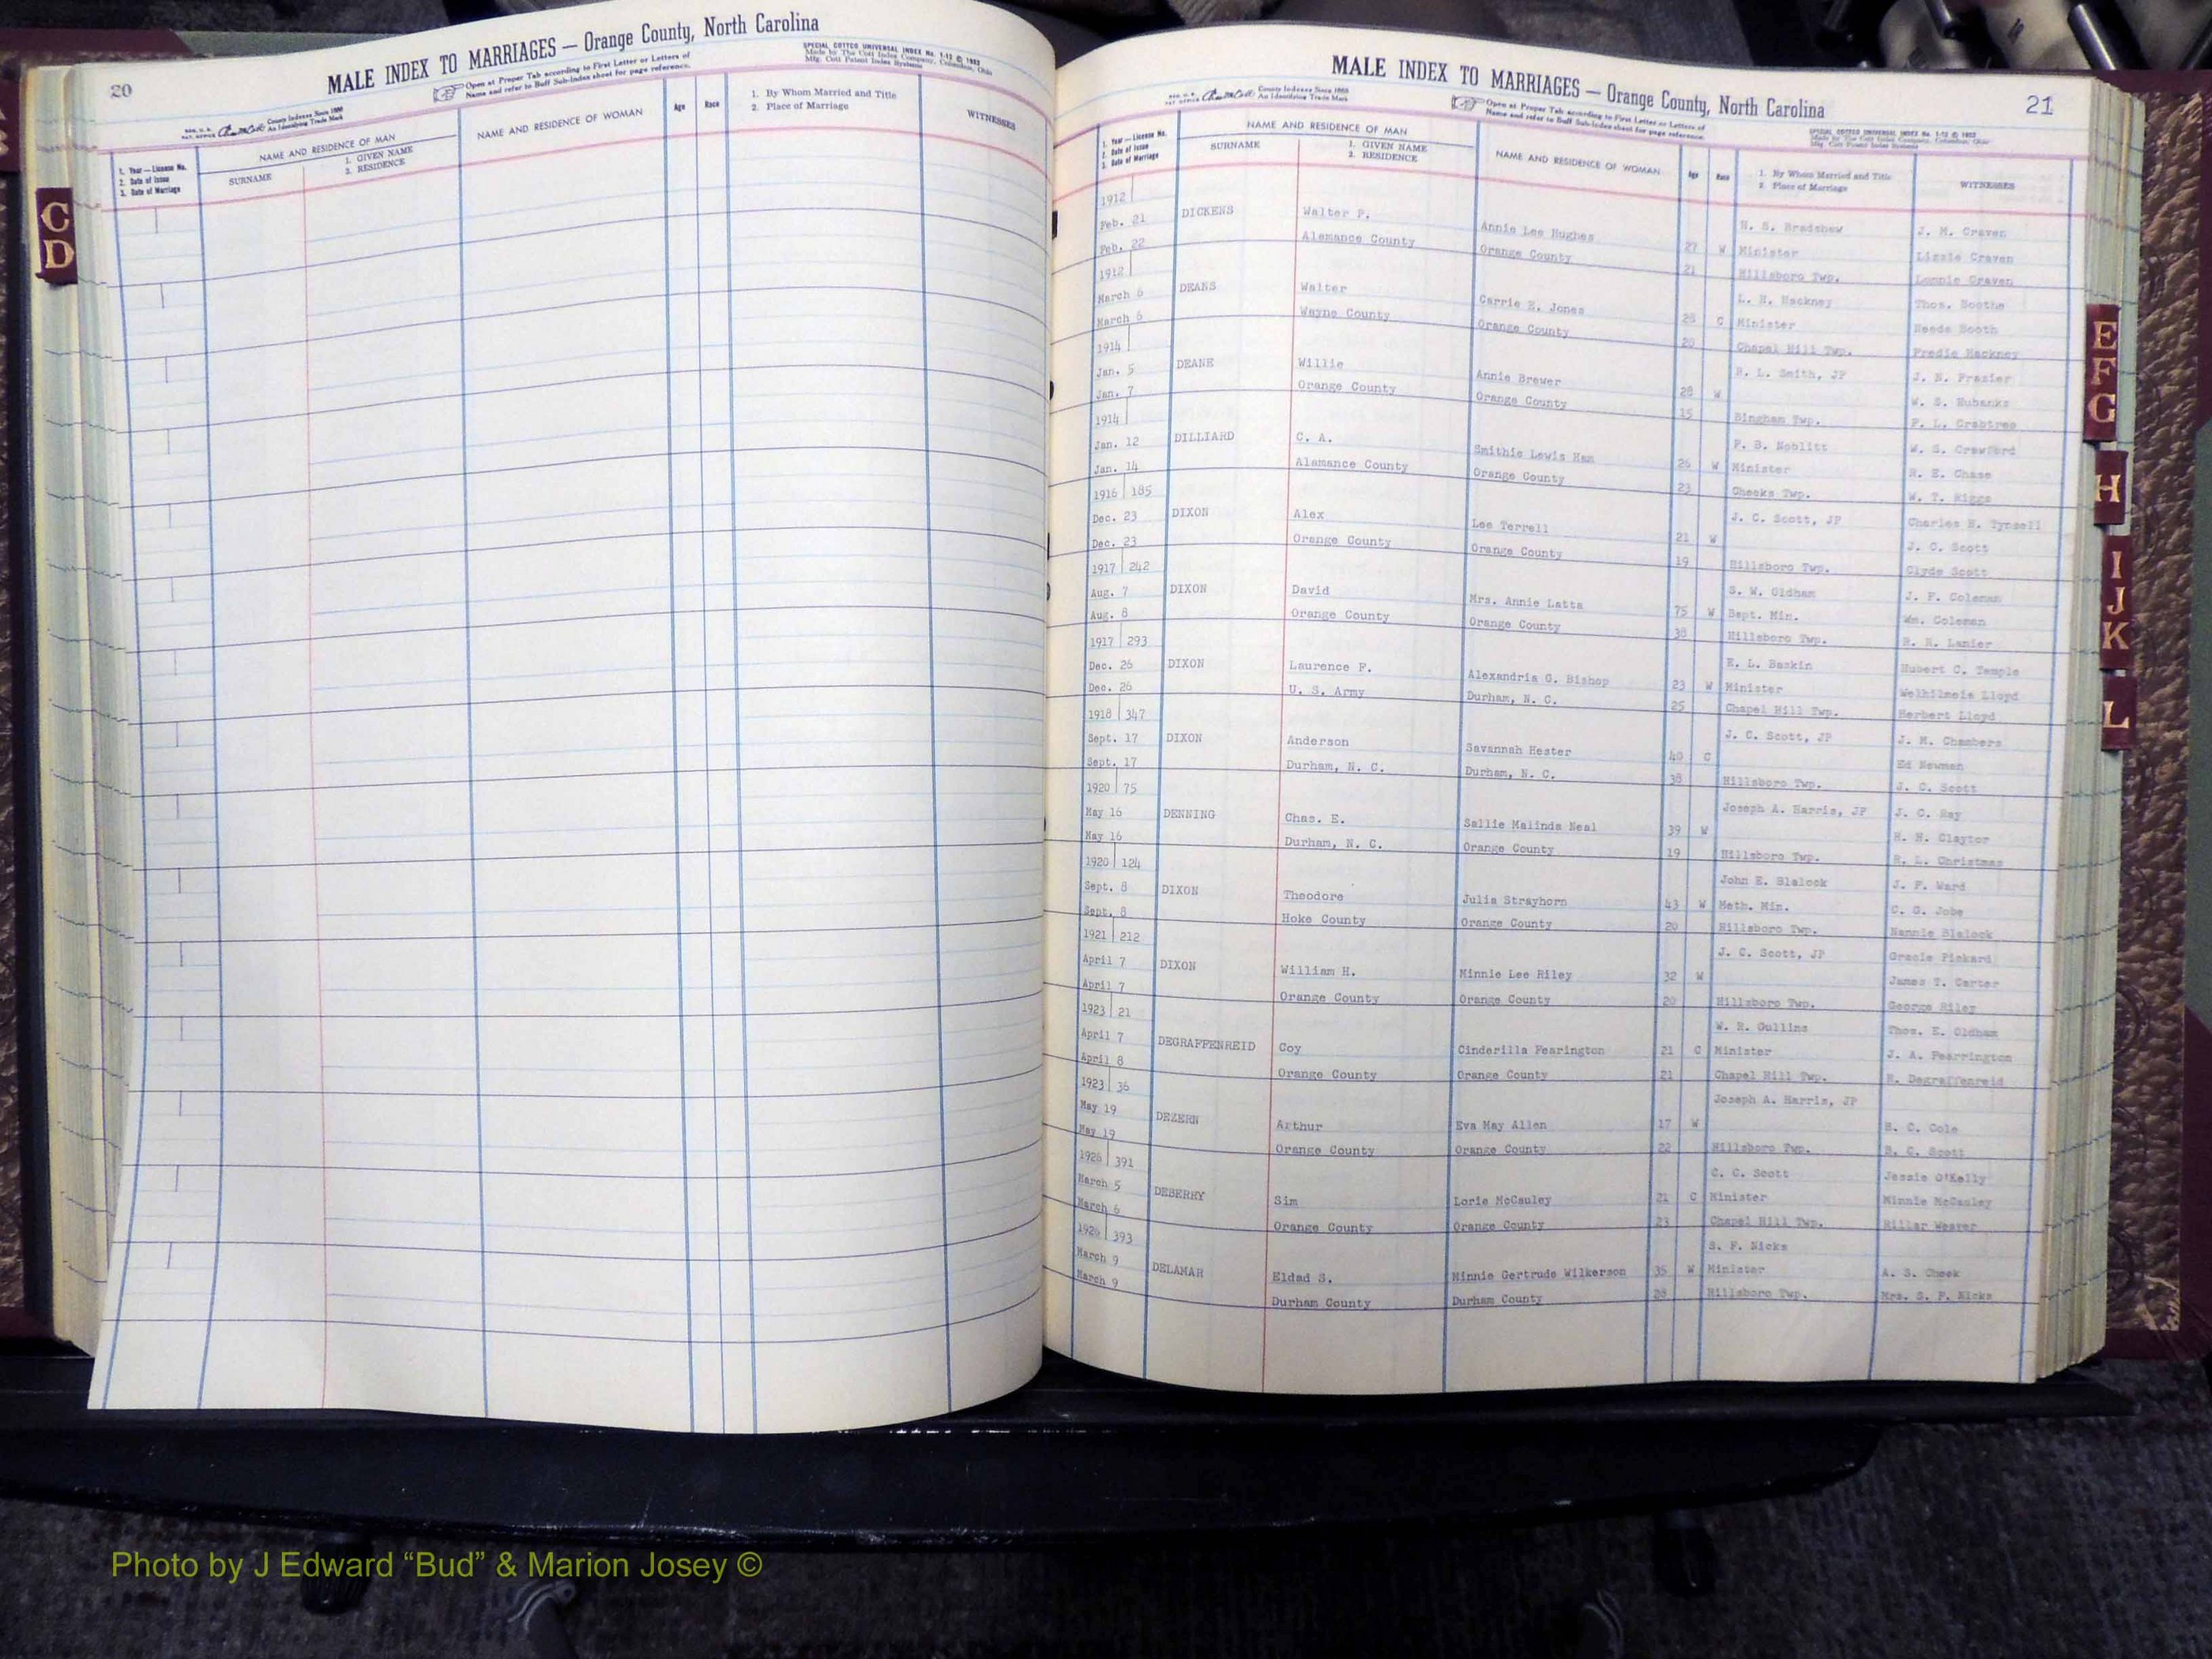 20
MALE INDEX TO MARRIAGES — Orange County, North Carolina
Open at Proper Tab according to First Letter or Letters of
Name and refer to Buff Sub-Index sheet for page reference.
SPECIAL COTTCO UNIVERSAL INDEX No. 1-12 © 1952
Made by The Cott Index Company, Columbus, Ohio
Mfg. Cott Patent Index Systems
County Indexes Since 1888
An Identifying Trade Mark
1. Year — License No.
2. Date of Issue
3. Date of Marriage
NAME AND RESIDENCE OF MAN
SURNAME
1. GIVEN NAME
2. RESIDENCE
NAME AND RESIDENCE OF WOMAN
Age
Race
1. By Whom Married and Title
2. Place of Marriage
WITNESSES
C
D
MALE INDEX TO MARRIAGES — Orange County, North Carolina
21
County Indexes Since 1888
An Identifying Trade Mark
Open at Proper Tab according to First Letter or Letters of
Name and refer to Buff Sub-Index sheet for page reference.
SPECIAL COTTCO UNIVERSAL INDEX No. 1-12 © 1952
Made by The Cott Index Company, Columbus, Ohio
Mfg. Cott Patent Index Systems
1. Year — License No.
2. Date of Issue
3. Date of Marriage
NAME AND RESIDENCE OF MAN
SURNAME
1. GIVEN NAME
2. RESIDENCE
NAME AND RESIDENCE OF WOMAN
Age
Race
1. By Whom Married and Title
2. Place of Marriage
WITNESSES
1912 H. S. Bradshaw J. M. Craven
Feb. 21 DICKENS Walter P. Annie Lee Hughes 27 W Minister Lizzie Craven
Feb. 22 Alamance County Orange County 21 Hillsboro Twp. Lonnie Craven
1912 L. H. Hackney Thos. Boothe
March 6 DEANS Walter Carrie E. Jones 28 C Minister Booth
March 6 Wayne County Orange County 20 Chapel Hill Twp. Hackney
1914 R. L. Smith, JP J. N. Frazier
Jan. 5 DEANE Willie Annie Brewer 28 W W. S. Eubanks
Jan. 7 Orange County Orange County 15 Bingham Twp. F. L. Crabtree
1914 P. B. Noblitt W. S. Crawford
Jan. 12 DILLIARD C. A. Smithie Lewis Ham 26 W Minister R. E. Chase
Jan. 14 Alamance County Orange County 23 Cheeks Twp. W. T. Riggs
1916 185 J. C. Scott, JP Charles E.
Dec. 23 DIXON Alex Lee Terrell 21 W J. C. Scott
Dec. 23 Orange County Orange County 19 Hillsboro Twp. Clyde Scott
1917 242 S. W. Oldham J. F. Coleman
Aug. 7 DIXON David Mrs. Annie Latta 75 W Bapt. Min. Wm. Coleman
Aug. 8 Orange County Orange County 38 Hillsboro Twp. Lanier
1917 293 E. L. Baskin Hubert C. Temple
Dec. 26 DIXON Laurence F. Alexandria G. Bishop 23 W Minister Lloyd
Dec. 26 U. S. Army Durham, N. C. 25 Chapel Hill Twp. Herbert Lloyd
1918 347 J. C. Scott, JP J. M. Chambers
Sept. 17 DIXON Anderson Savannah Hester 40 C Ed Newman
Sept. 17 Durham, N. C. Durham, N. C. 38 Hillsboro Twp. J. C. Scott
1920 75 Joseph A. Harris, JP J. C. Ray
May 16 DENNING Chas. E. Sallie Malinda Neal 39 W H. H. Clayton
May 16 Durham, N. C. Orange County 19 Hillsboro Twp. R. L. Christmas
1920 124 John E. Blalock J. F. Ward
Sept. 8 DIXON Theodore Julia Strayhorn 43 W Meth. Min. C. G. Jobe
Sept. 8 Hoke County Orange County 20 Hillsboro Twp. Nannie Blalock
1921 212 J. C. Scott, JP Gracie Pickard
April 7 DIXON William H. Minnie Lee Riley 32 W James T. Carter
April 7 Orange County Orange County 20 Hillsboro Twp. George Riley
1923 21 W. R. Gullins Thos. E. Oldham
April 7 DEGRAFFENREID Coy Cinderilla Fearington 21 C Minister J. A. Fearrington
April 8 Orange County Orange County 21 Chapel Hill Twp. Degraffenreid
1923 36 Joseph A. Harris, JP
May 19 DEZERN Arthur Eva May Allen 17 W Cole
May 19 Orange County Orange County 22 Hillsboro Twp. Scott
1926 391 C. C. Scott Jessie O'Kelly
March 5 DEBERRY Sim Lorie McCauley 21 C Minister Minnie McCauley
March 6 Orange County Orange County 23 Chapel Hill Twp. Weaver
1926 393 S. F. Nicks
March 9 DELAMAR Eldad S. Minnie Gertrude Wilkerson 35 W Minister A. S. Cheek
March 9 Durham County Durham County 28 Hillsboro Twp. Mrs. S. F. Nicks
E
F
G
H
I
J
K
L
Photo by J Edward “Bud” & Marion Josey ©